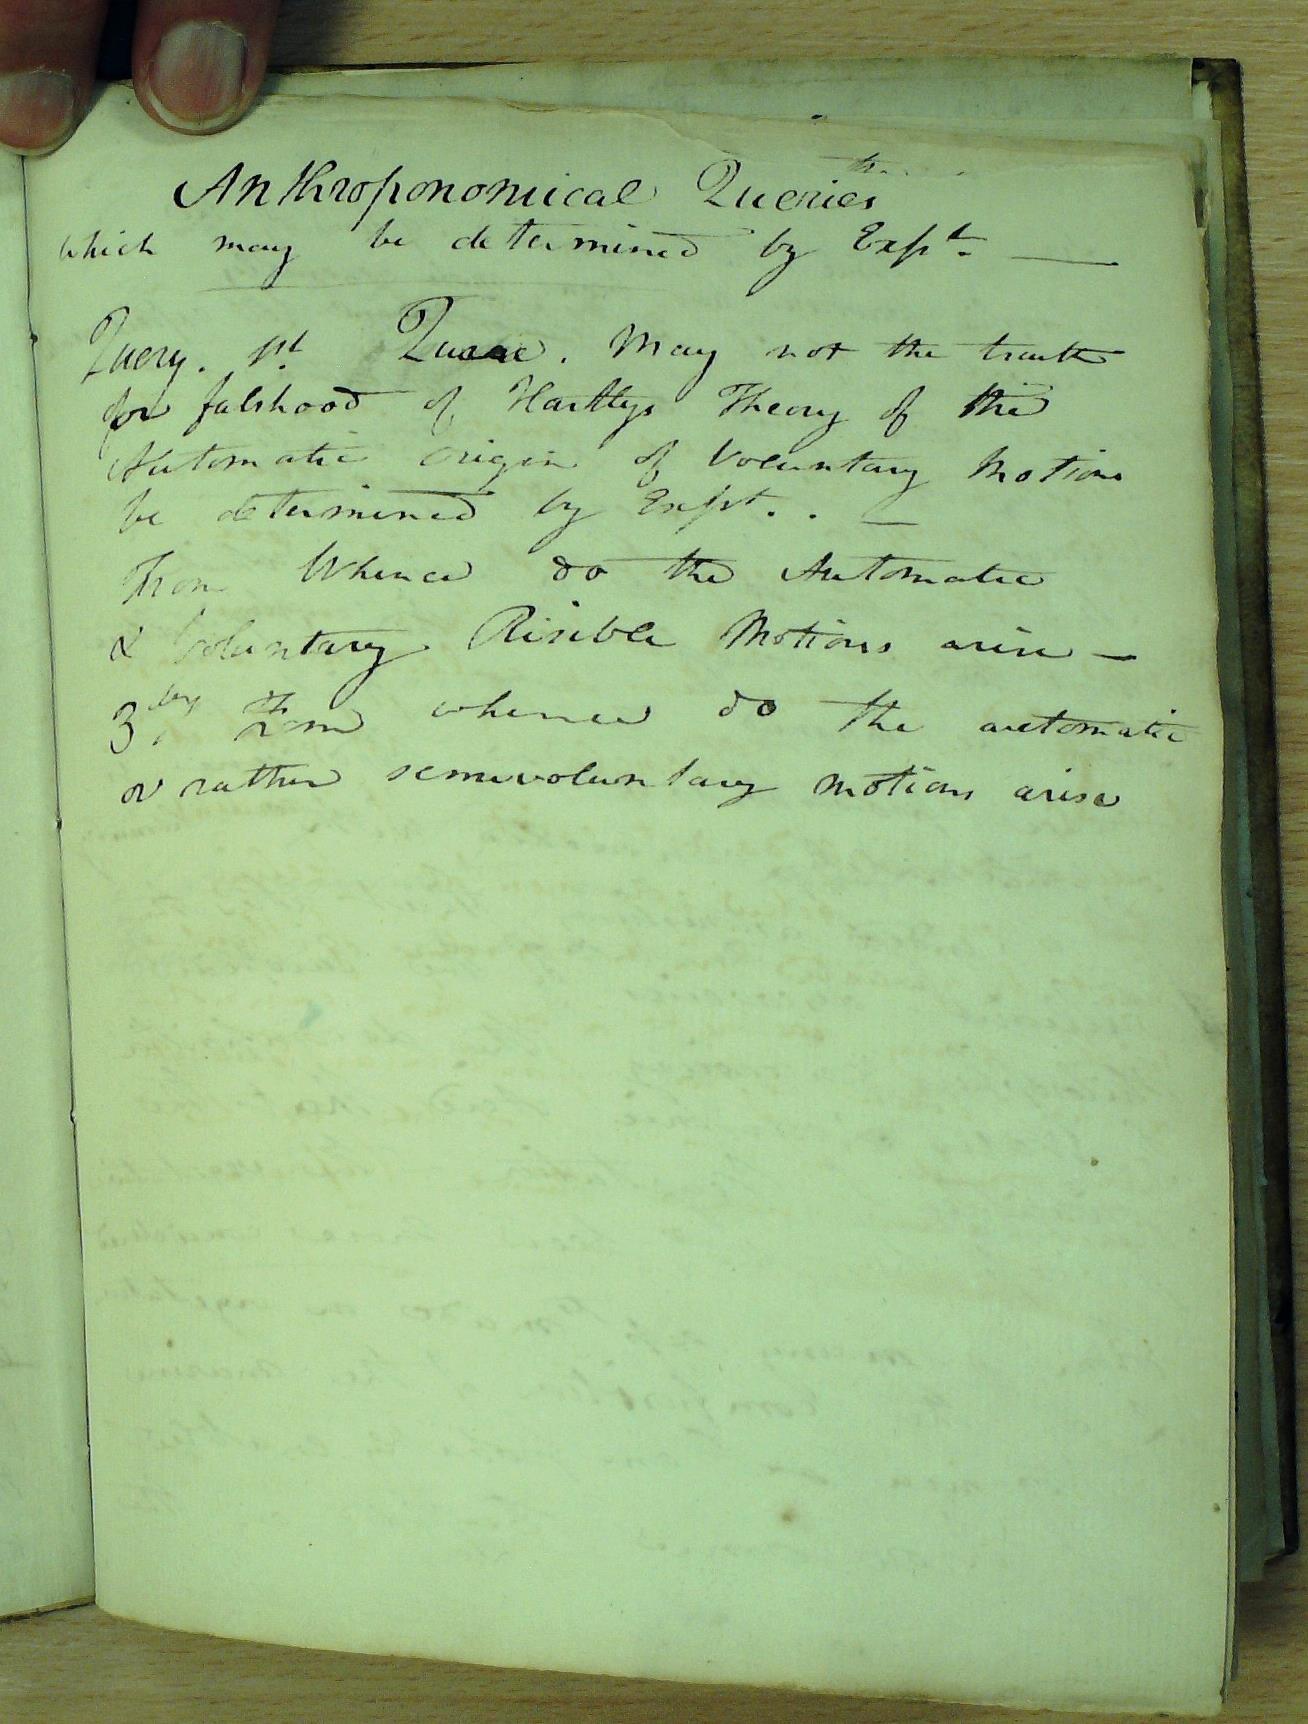 Anthroponomical Queries
which may be determined by Expt. —
Query. 1st. Quere. May not the truth
or falshood of Hartleys Theory of the
Automatic origin of Voluntary Motions
be determined by Expt. . —
From Whence do the Automatic
& Voluntary Risible Motions arise —
3ly. From whence do the automatic
or rather semivoluntary motions arise